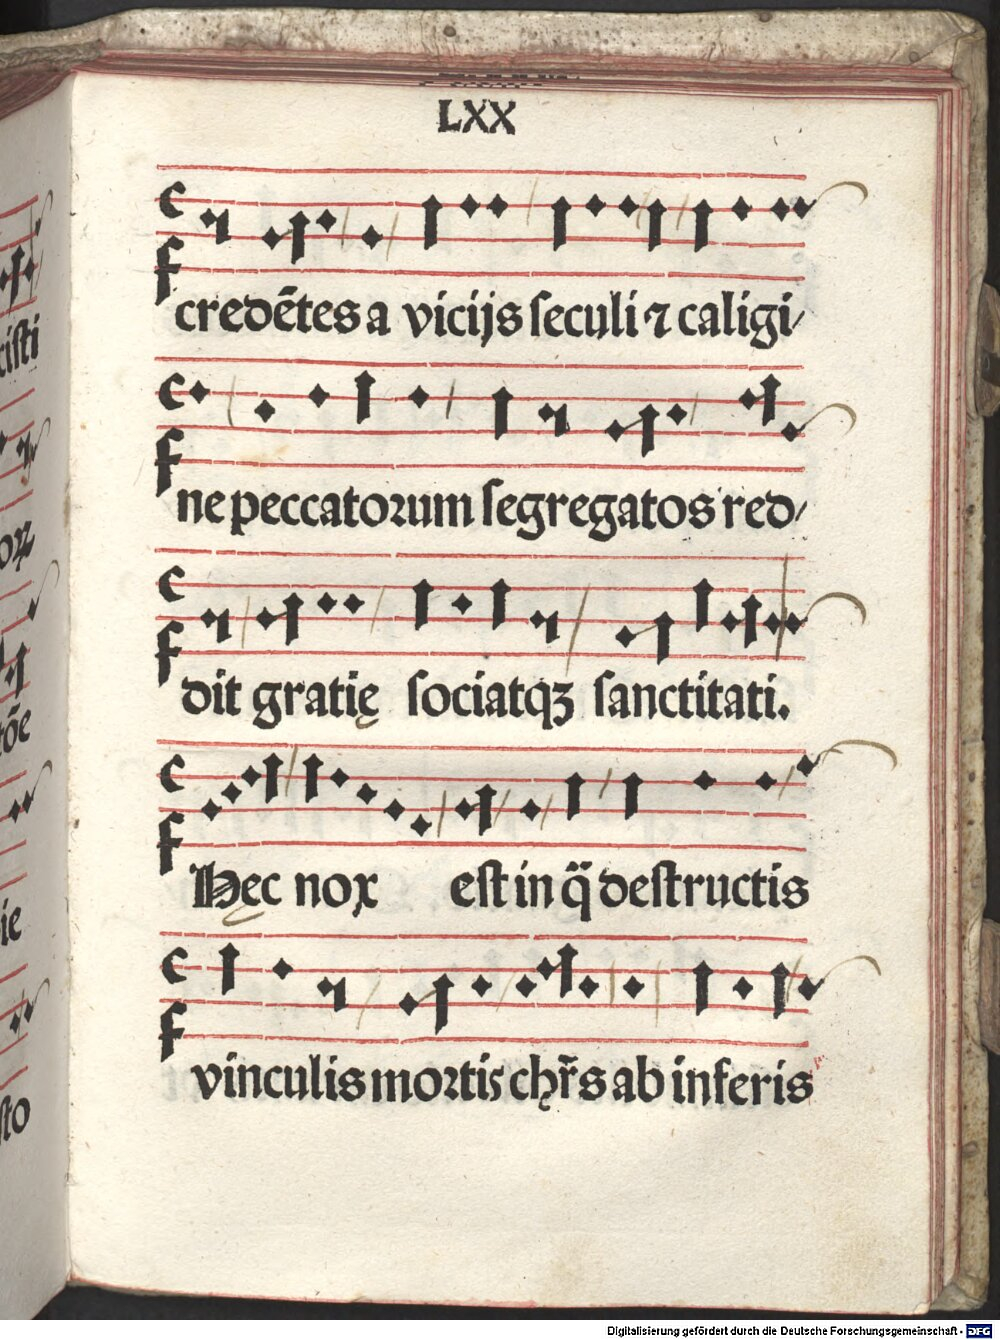 LXX
credẽtes a vicijs seculi ⁊ caligi/
ne peccatorum segregatos red/
dit gratię sociatqꝫ sanctitati.
Hęc nox est in q̈ destructis
vinculis mortis chr̃s ab inferis
cisti
orꝫ
tõe
ie
sto
Digitalisierung gefördert durch die Deutsche Forschungsgemeinschaft - DFG